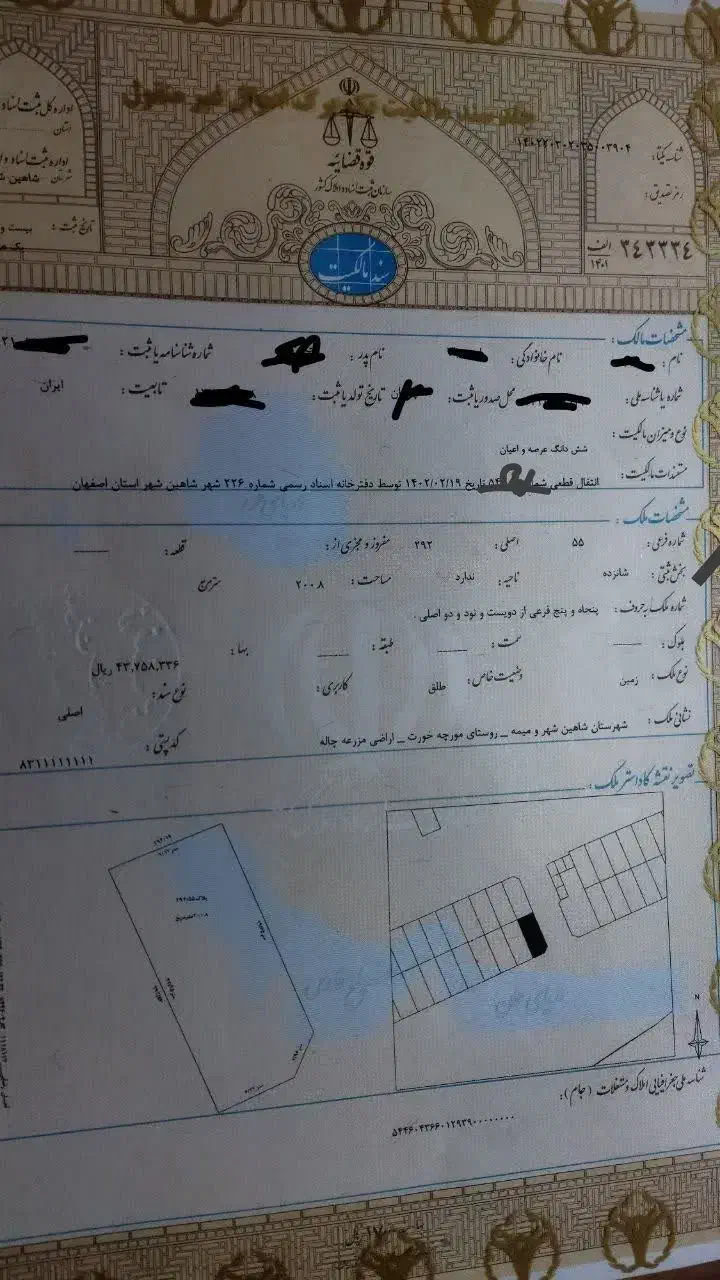 اداره کل ثبت اسناد
استان
اداره ثبت اسناد و
شهرستان شاهین
تاریخ ثبت : بیست و
قوه قضائیه
سازمان ثبت اسناد و املاک کشور
سند مالکیت
شناسه یکتا: ۱۴۰۲۲۰۳۰۲۰۳۵۰۰۳۹۰۴
رمز تصدیق :
۳۴۳۳۳۴ الف ۱۴۰۱
مشخصات مالک :
نام : نام خانوادگی : نام پدر : شماره شناسنامه یا ثبت :
شماره یا شناسه ملی : محل صدور یا ثبت : تاریخ تولد یا ثبت : تابعیت : ایران
نوع و میزان مالکیت : شش دانگ عرصه و اعیان
مستندات مالکیت : انتقال قطعی تاریخ ۱۴۰۲/۰۲/۱۹ توسط دفترخانه اسناد رسمی شماره ۲۲۶ شهر شاهین شهر استان اصفهان
مشخصات ملک :
شماره فرعی : ۵۵ اصلی : ۲۹۲ مفروز و مجزی از : قطعه :
بخش ثبتی : شانزده ناحیه : ندارد مساحت : ۲۰۰۸ مترمربع
شماره ملک به حروف : پنجاه و پنج فرعی از دویست و نود و دو اصلی .
بلوک : سمت : طبقه : بها : ۴۳,۷۵۸,۳۳۶ ریال
نوع ملک : زمین وضعیت خاص : طلق کاربری : نوع سند : اصلی
نشانی ملک : شهرستان شاهین شهر و میمه _ روستای مورچه خورت _ اراضی مزرعه چاله کدپستی : ۸۳۱۱۱۱۱۱۱۱
تصویر نقشه کاداستر ملک :
N
شناسه ملی جغرافیایی املاک و مستغلات (جام) :
۵۴۴۶۰۴۳۶۶۰۱۲۹۳۹۰۰۰۰۰۰۰۰